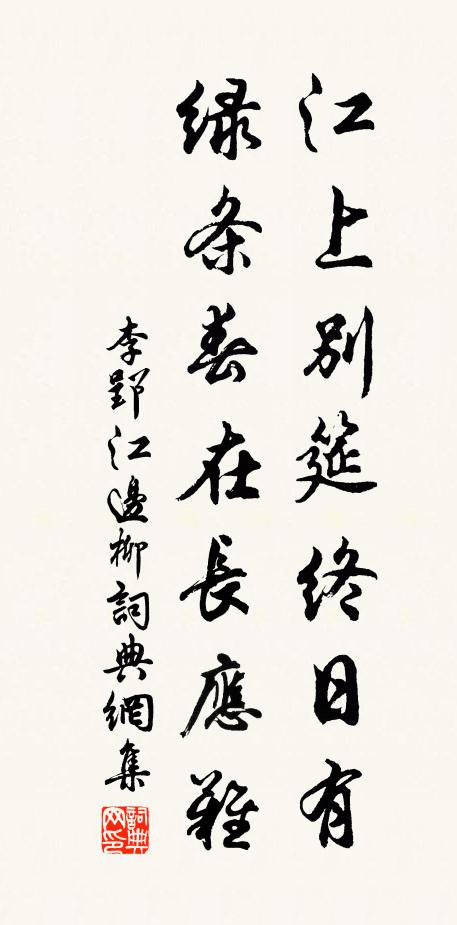 江上別筵終日有
綠条春在長應難
李郢江邊柳詞典網集
詞典網印